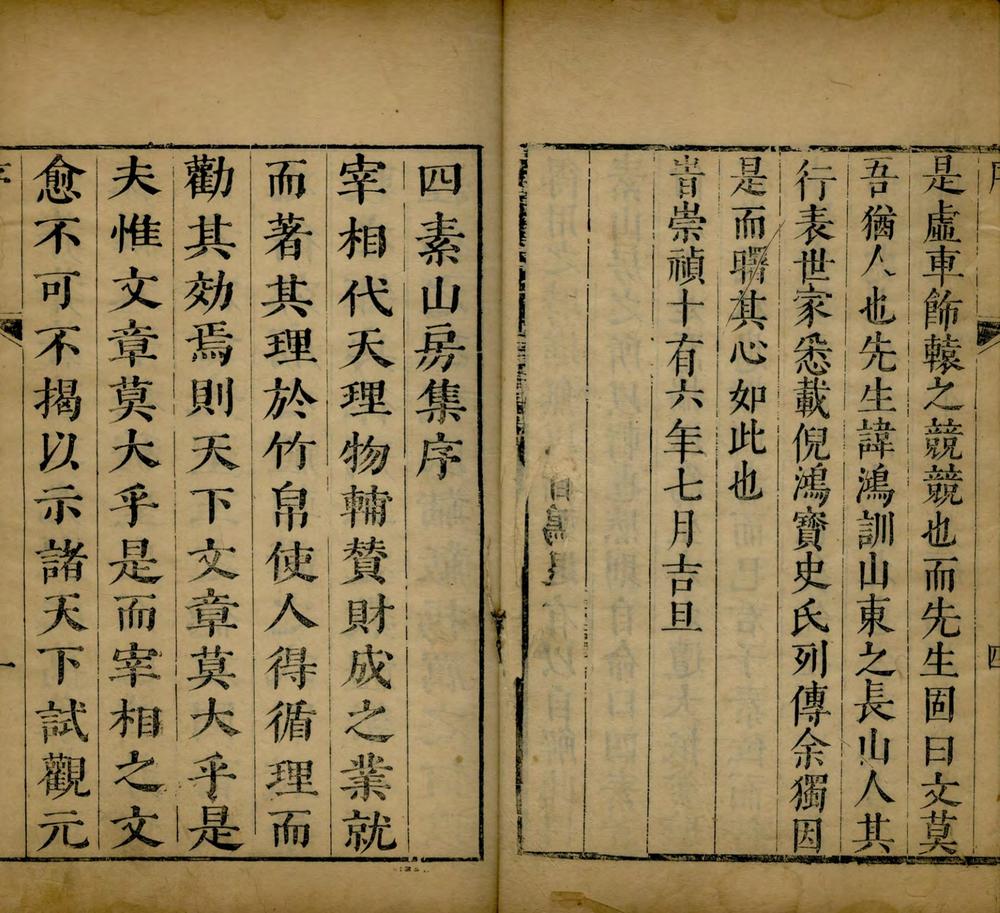 四
是虛車飾轅之競競也而先生固曰文莫
吾猶人也先生諱鴻訓山東之長山人其
行表世家悉載倪鴻寶史氏列傳余獨因
是而曙其心如此也
旹崇禎十有六年七月吉旦
四素山房集序
宰相代天理物輔贊財成之業就
而著其理於竹帛使人得循理而
勸其効焉則天下文章莫大乎是
夫惟文章莫大乎是而宰相之文
愈不可不揭以示諸天下試觀元
序
一